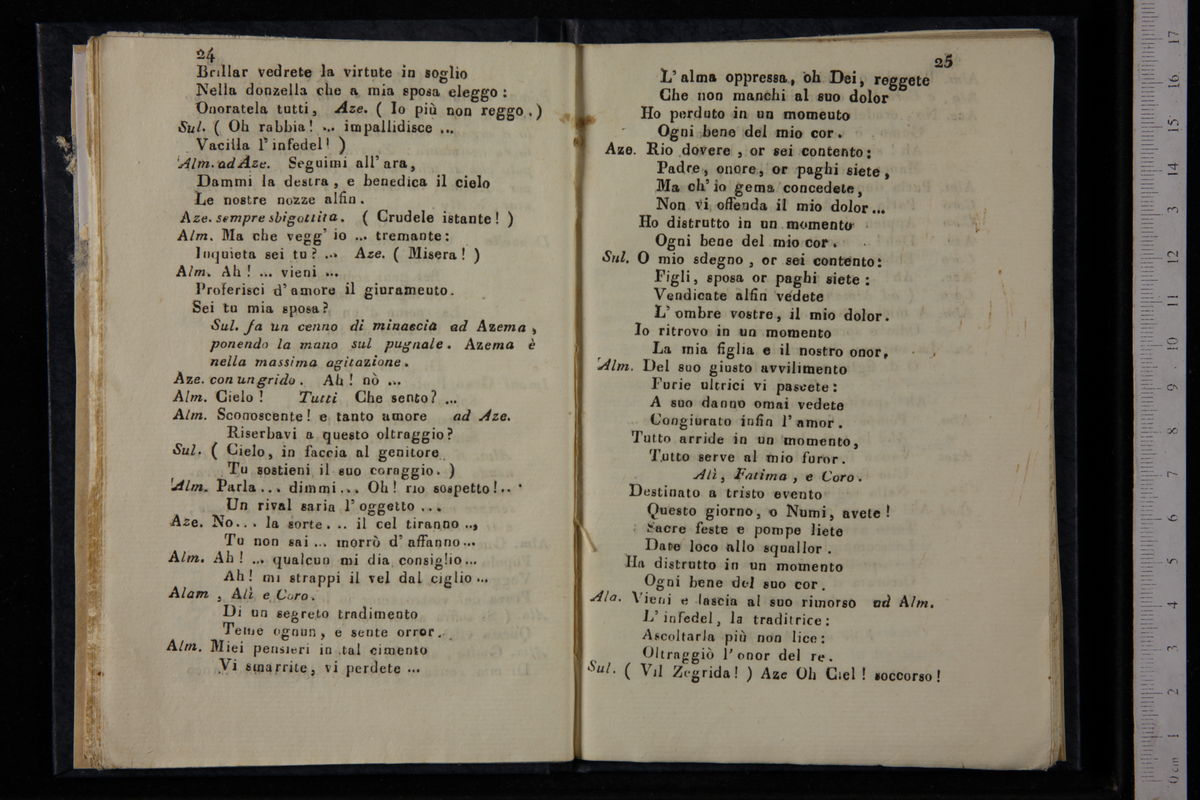 24
Brillar vedrete la virtute in soglio
Nella donzella che a mia sposa eleggo :
Onoratela tutti, Aze. ( Io più non reggo.)
Sul. ( Oh rabbia! ... impallidisce ...
Vacilla l'infedel! )
Alm. ad Aze. Seguimi all' ara,
Dammi la destra, e benedica il cielo
Le nostre nozze alfin.
Aze. sempre sbigottita. ( Crudele istante! )
Alm. Ma che vegg' io ... tremante:
Inquieta sei tu? ... Aze. ( Misera! )
Alm. Ah! ... vieni ...
Proferisci d'amore il giuramento.
Sei tu mia sposa?
Sul. fa un cenno di minaccia ad Azema,
ponendo la mano sul pugnale. Azema è
nella massima agitazione.
Aze. con un grido. Ah! nò ...
Alm. Cielo! Tutti Che sento? ...
Alm. Sconoscente! e tanto amore ad Aze.
Riserbavi a questo oltraggio?
Sul. ( Cielo, in faccia al genitore
Tu sostieni il suo coraggio. )
Alm. Parla... dimmi... Oh! rio sospetto!..
Un rival saria l'oggetto ...
Aze. No... la sorte... il cel tiranno ..,
Tu non sai ... morrò d'affanno...
Alm. Ah! ... qualcun mi dia consiglio...
Ah! mi strappi il vel dal ciglio ...
Alam, Alì e Coro.
Di un segreto tradimento
Teme ognun, e sente orror.
Alm. Miei pensieri in tal cimento
Vi smarrite, vi perdete ...
25
L'alma oppressa, oh Dei, reggete
Che non manchi al suo dolor
Ho perduto in un momento
Ogni bene del mio cor.
Aze. Rio dovere, or sei contento:
Padre, onore, or paghi siete,
Ma ch'io gema concedete,
Non vi offenda il mio dolor...
Ho distrutto in un momento
Ogni bene del mio cor.
Sul. O mio sdegno, or sei contento:
Figli, sposa or paghi siete:
Vendicate alfin vedete
L'ombre vostre, il mio dolor.
Io ritrovo in un momento
La mia figlia e il nostro onor,
Alm. Del suo giusto avvilimento
Furie ultrici vi pascete:
A suo danno omai vedete
Congiurato infin l'amor.
Tutto arride in un momento,
Tutto serve al mio furor.
Alì, Fatima, e Coro.
Destinato a tristo evento
Questo giorno, o Numi, avete!
Sacre feste e pompe liete
Date loco allo squallor.
Ha distrutto in un momento
Ogni bene del suo cor.
Ala. Vieni e lascia al suo rimorso ad Alm.
L'infedel, la traditrice:
Ascoltarla più non lice:
Oltraggiò l'onor del re.
Sul. ( Vil Zegrida! ) Aze Oh Ciel! soccorso!
0 cm 1 2 3 4 5 6 7 8 9 10 11 12 13 14 15 16 17